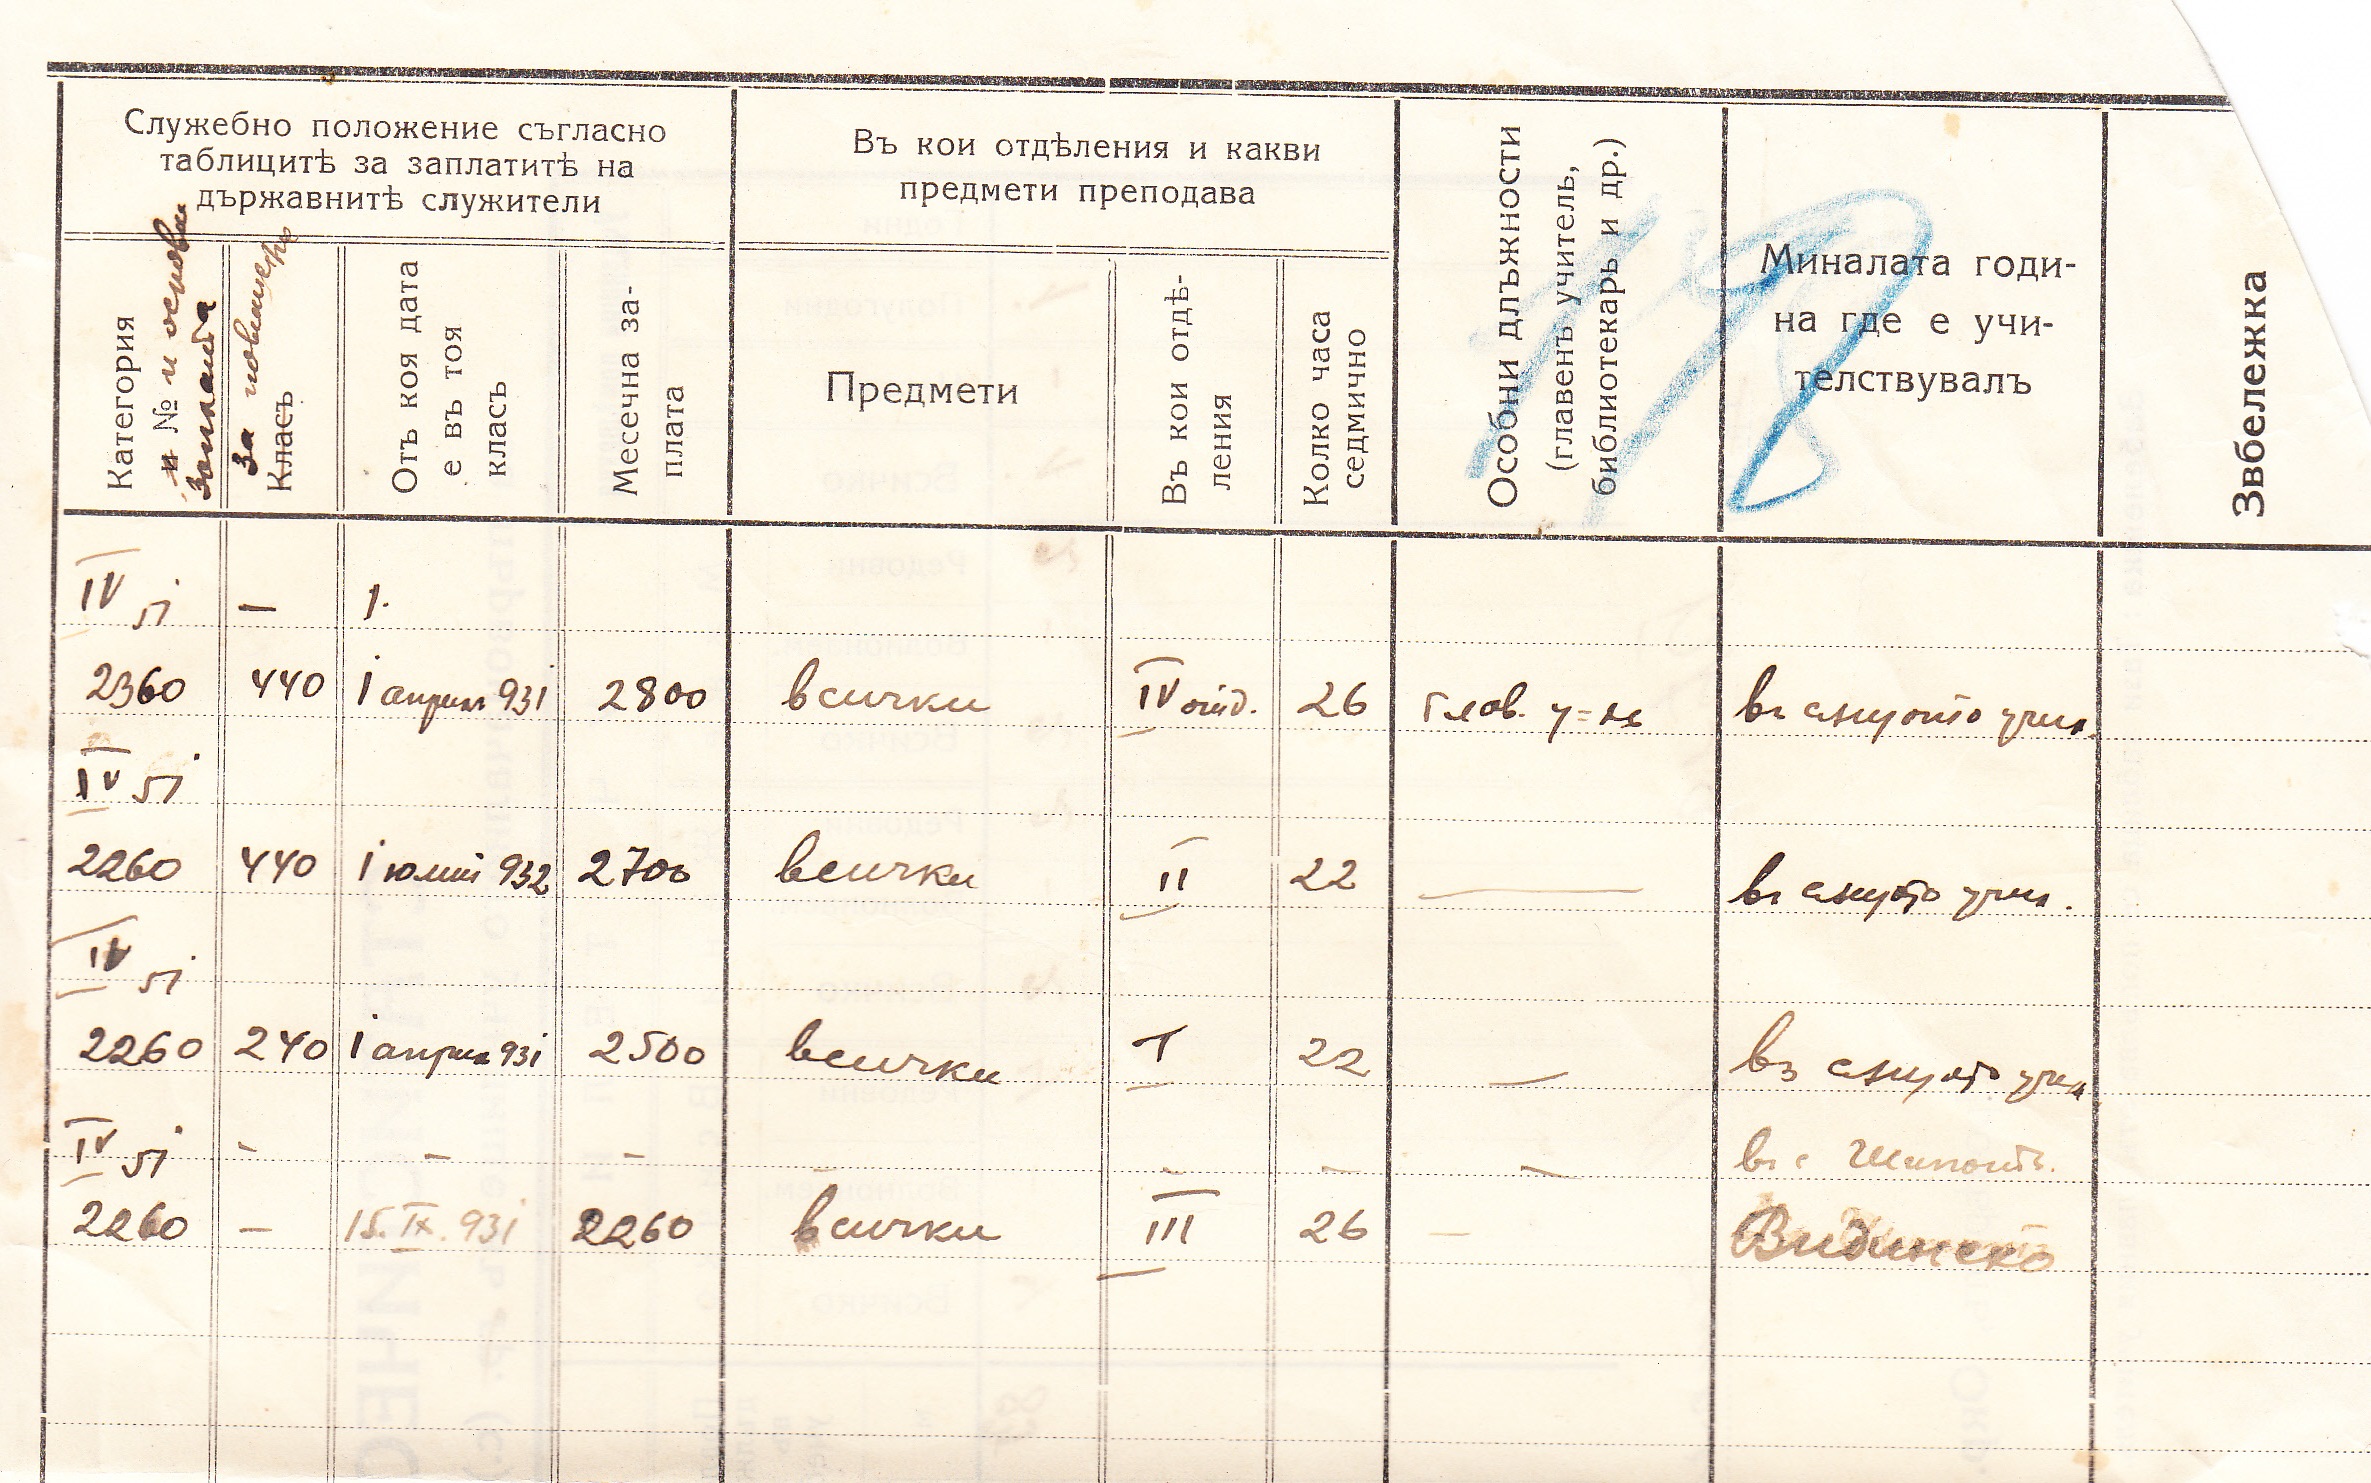 Служебно положение съгласно
таблицитѣ за заплатитѣ на
държавнитѣ служители
Въ кои отдѣления и какви
предмети преподава
Особни длъжности
(главенъ учитель,
библиотекарь и др.)
Миналата годи-
на где е учи-
телствувалъ
Звбележка
Категория
и № и основн
заплата
За повишение
Класъ
Отъ коя дата
е въ тоя
класъ
Месечна за-
плата
Предмети
Въ кои отдѣ-
ления
Колко часа
седмично
18
IV 51 — 1.
2360 440 1 април 931 2800 всички IV отд. 26 Глав. у=л въ същото учил.
IV 51
2260 440 1 юлий 932 2700 всички II 22 — въ същото учил.
IV 51
2260 240 1 април 931 2500 всички I 22 — въ същото учил.
IV 51 - - - - - - въ с.
2260 — 15.IX.931 2260 всички III 26 — Видинско